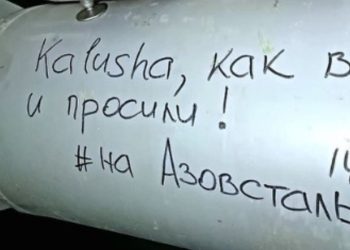 Kalusha, как в
и просили!
#на Азовсталь